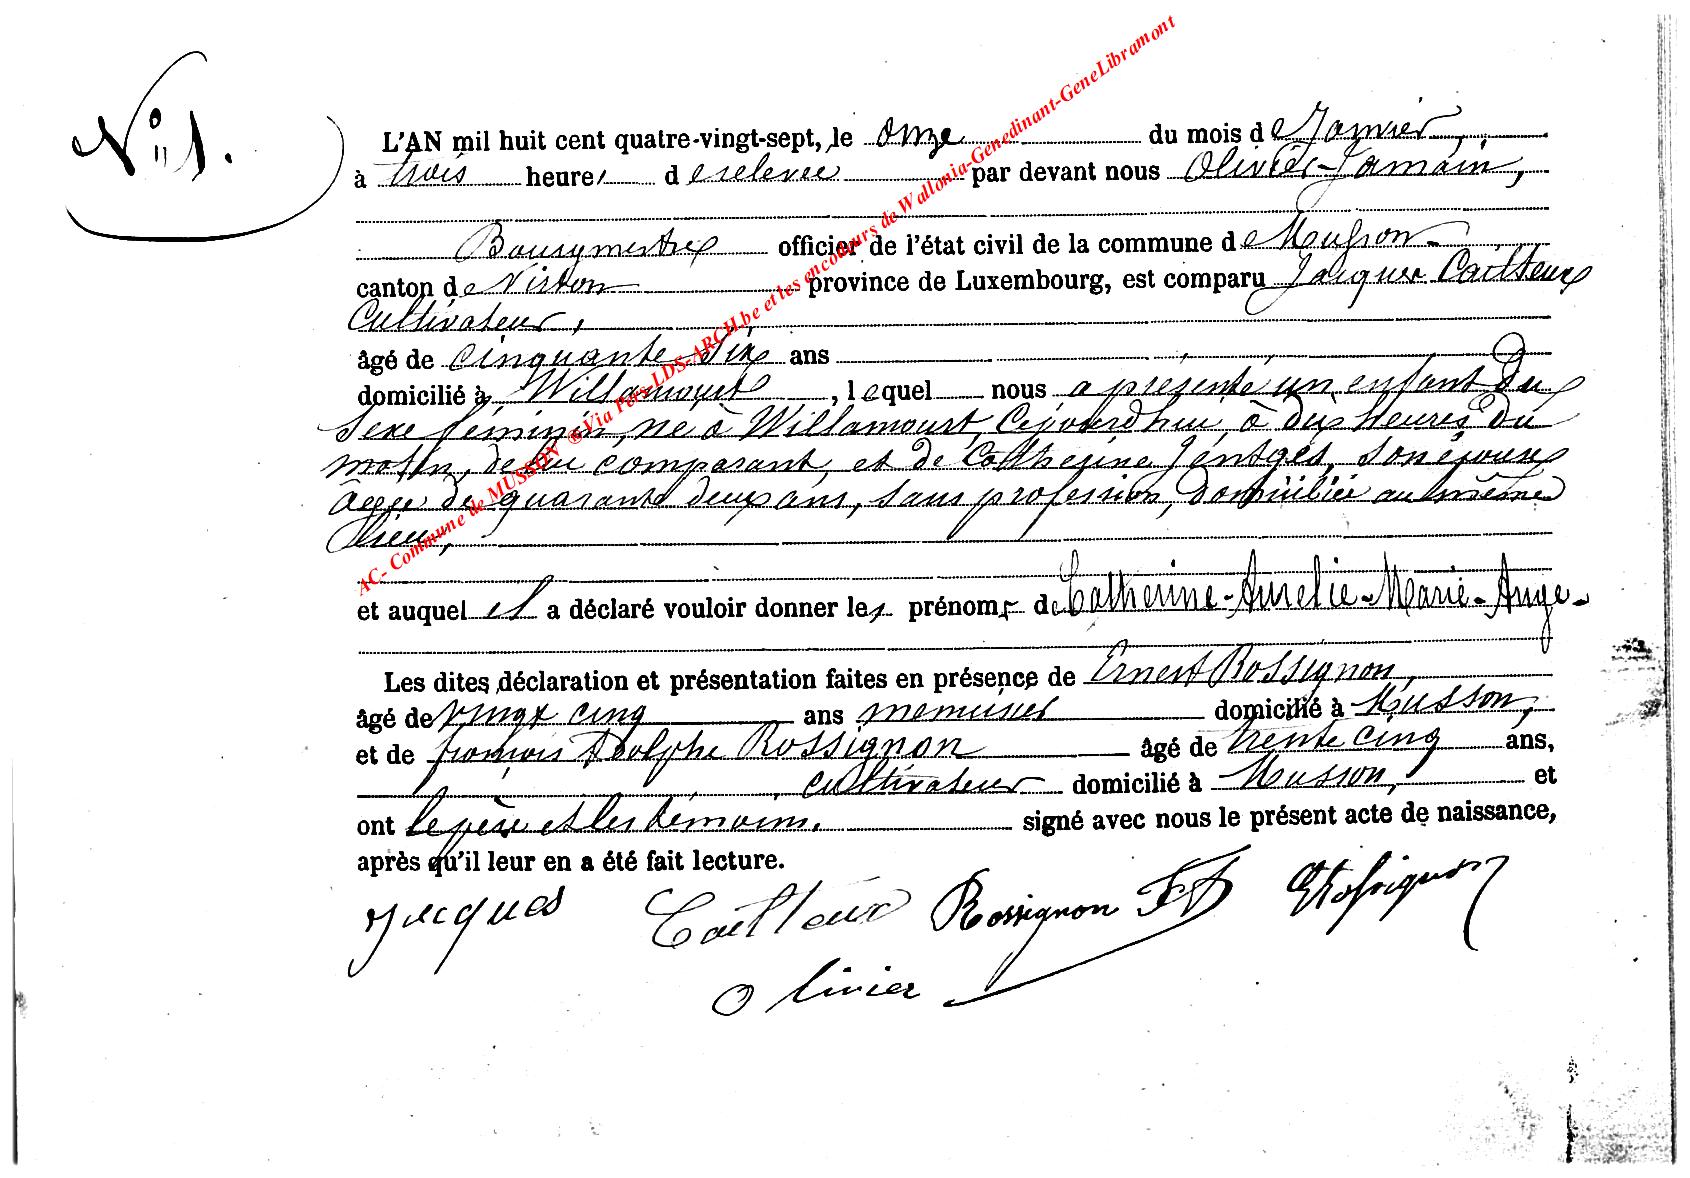 N° 1.
L'AN mil huit cent quatre-vingt-sept, le onze du mois de Janvier,
à trois heures de relevée par devant nous Olivier-Jamain,
Bourgmestre officier de l'état civil de la commune de Musson
canton de Virton province de Luxembourg, est comparu Jacques Cailteux
Cultivateur,
âgé de cinquante six ans
domicilié à Willancourt, lequel nous a présenté un enfant du
sexe féminin, né à Willancourt, cejourdhui, à dix heures du
matin, de lui comparant, et de Catherine Jentges, son épouse
âgée de quarante deux ans, sans profession, domiciliée au même
lieu,
et auquel il a déclaré vouloir donner les prénoms de Catherine-Aurelie-Marie-Ange-
Les dites déclaration et présentation faites en présence de Ernest Rossignon,
âgé de vingt cinq ans menuisier domicilié à Musson,
et de françois Adolphe Rossignon âgé de trente cinq ans,
cultivateur domicilié à Musson, et
ont le père et les témoins, signé avec nous le présent acte de naissance,
après qu'il leur en a été fait lecture.
Jacques Cailteux Rossignon FA E Rossignon
Olivier
AC- Commune de MUSSON ® Via Pers-LDS-ARCH.be et les encodeurs de Wallonia-Genedinant-GeneLibramont